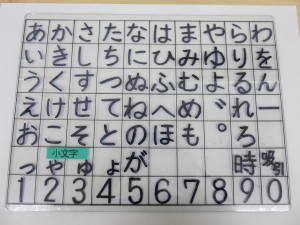 あかさたなはまやらわ
いきしちにひみゆりを
うくすつぬふむよるん
えけせてねへめ゛れー
おこそとのほも゜ろ
小文字
っゃゅょが時吸引
1234567890